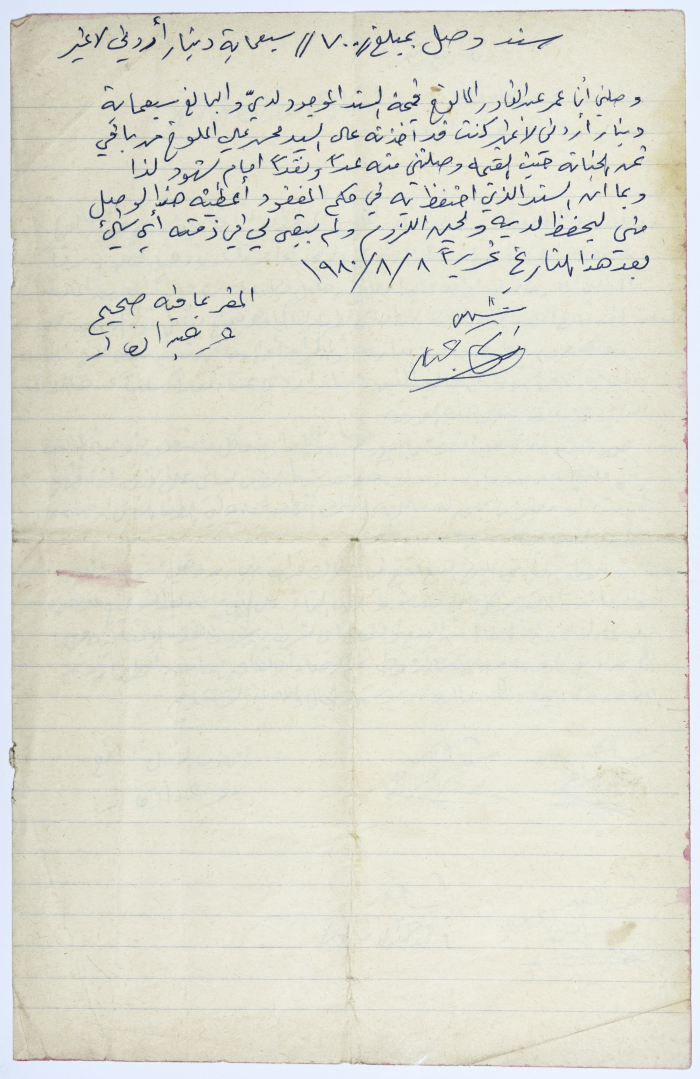 سند وصل بمبلغ //٧٠٠// سبعماية دينار أردني لا غير
وصلني أنا عمر عبد القادر المالوخ قيمة السند الموجود لديّ والبالغ سبعماية
دينار أردني لا غير كنت قد أخذته على السيد محمد علي الملوخ من باقي
ثمن حيث القيمة وصلتني منه عداً ونقداً أمام شهود لذا
وبما أن السند الذي احتفظت به في حكم المفقود أعطيته هذا الوصل
مني ليحفظ لديه ولحين اللزوم ولم يبقى لي في ذمته أي شيء
بعد هذا التاريخ تحريراً ٨/٨/١٩٨٠
المقر بما فيه صحيح
عمر عبد القادر
شهود